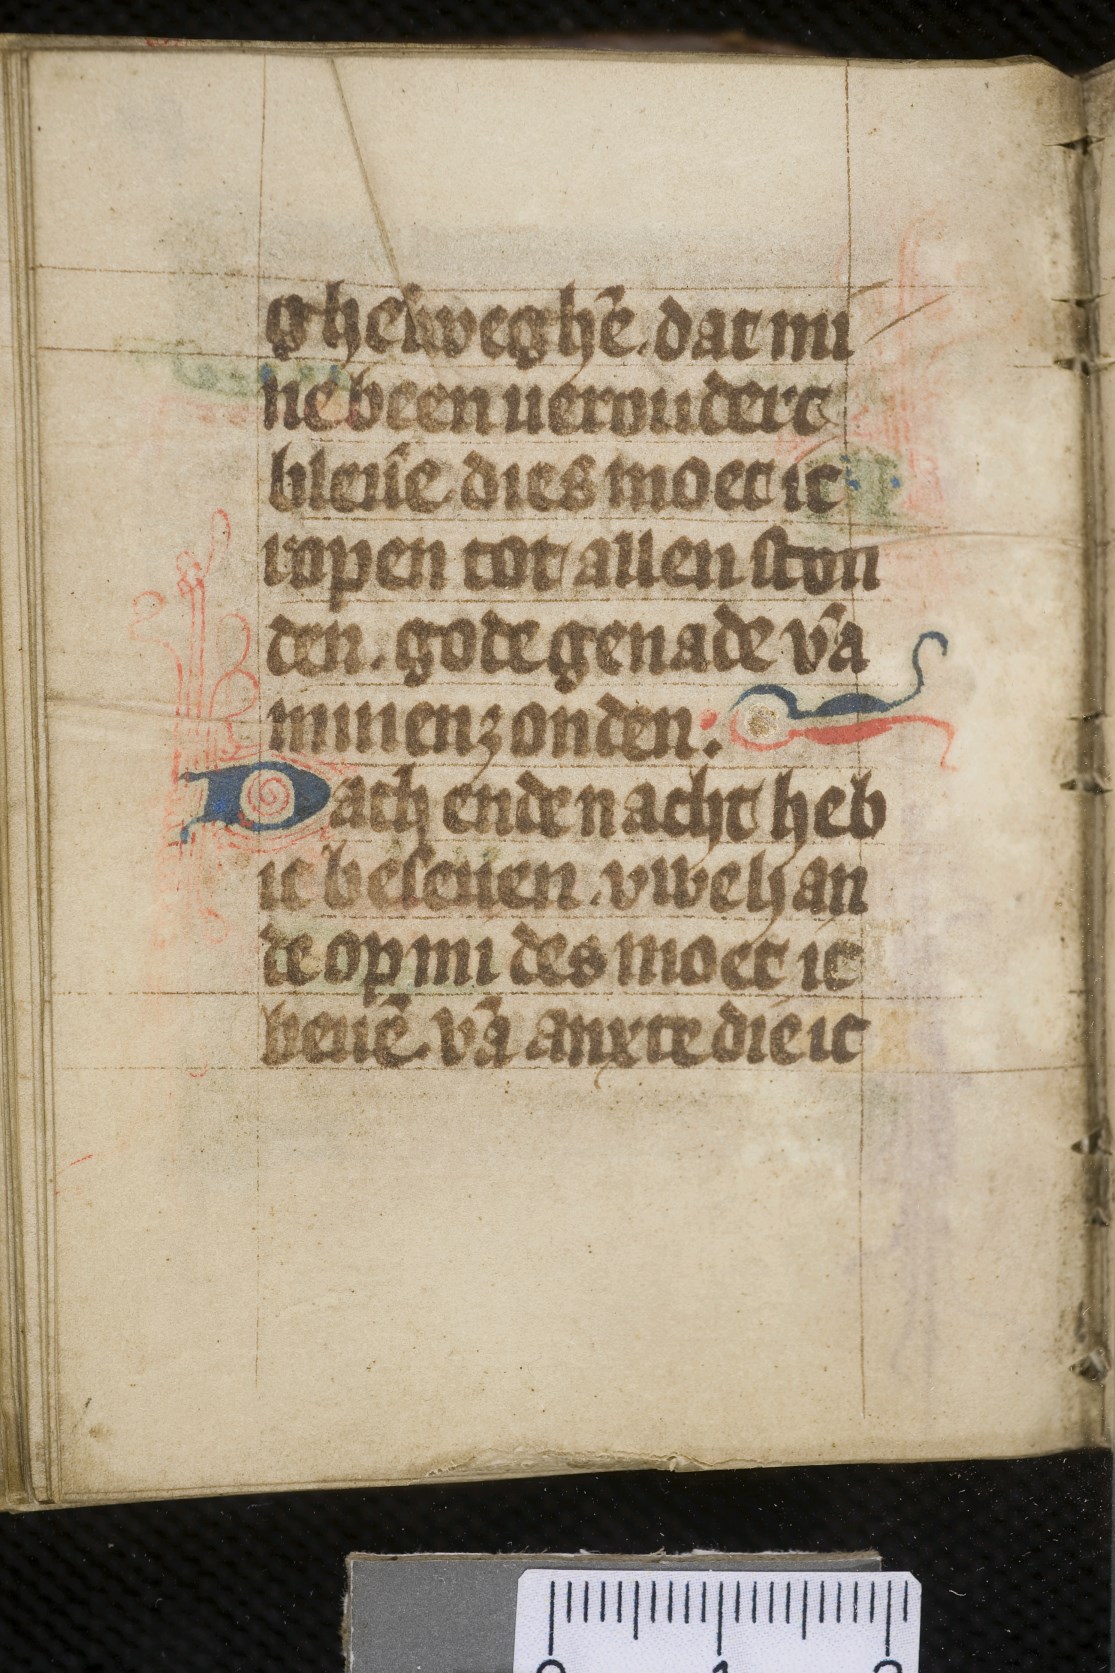 gheswegħe. dat mi
ne been ueroudert
bleuē dies moet ic
ropen tot allen ston
den. gode genade vā
minen zonden:
Dach ende nacht heb
ic beseuen. vwe han
de op mi des moet ic
beuē. vā anxte die ic
0 1 2